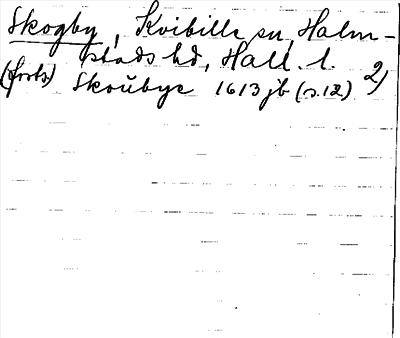 Skogby, Kvibille sn, Halm-
stads hd, Hall. l. 2)
(forts) Skoŭbye 1613 jb (s. 12)